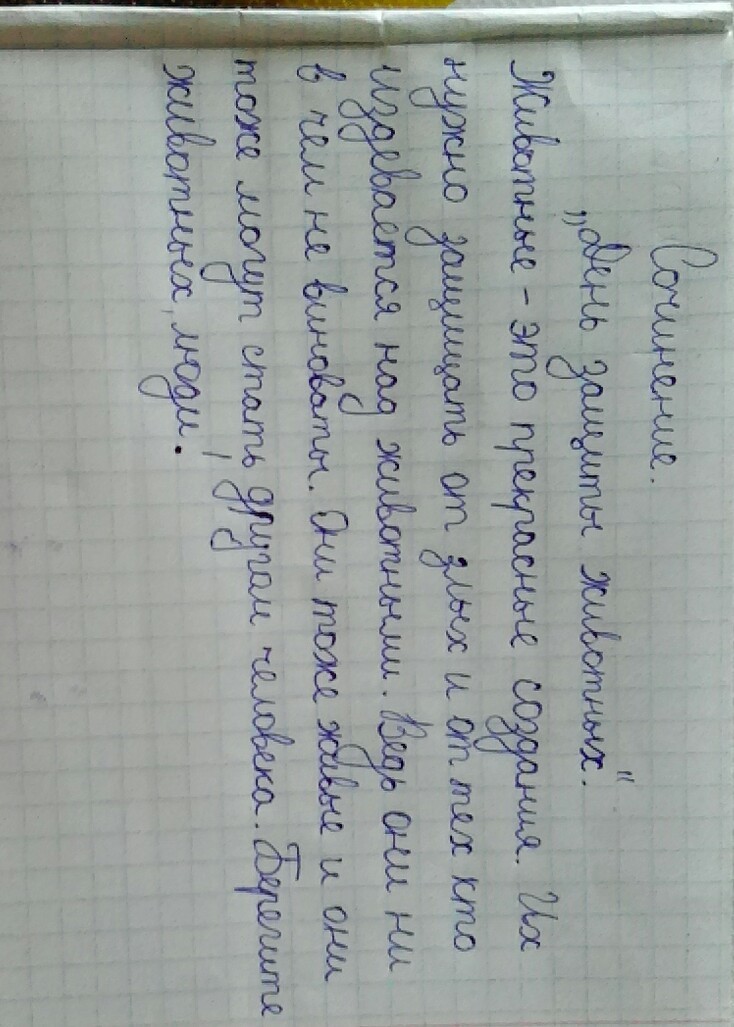 Сочинение.
„День защиты животных".
Животные - это прекрасные создания. Их
нужно защищать от злых и от тех кто
издевается над животными. Ведь они ни
в чем не виноваты. Они тоже живые и они
тоже могут стать другам человека. Берегите
животных, люди.